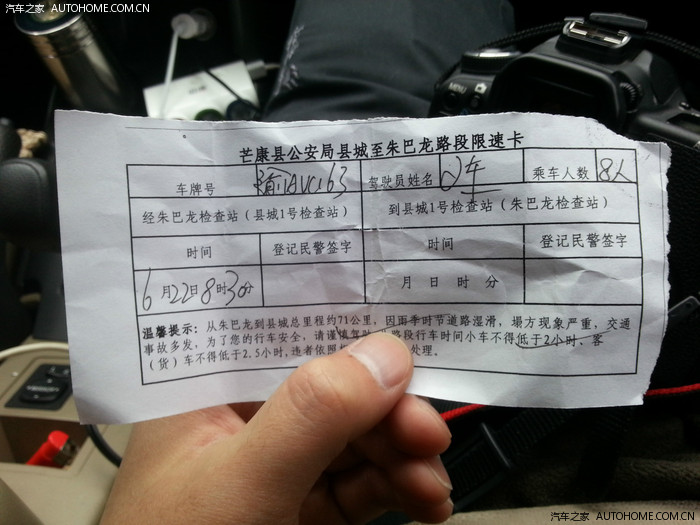 汽车之家 AUTOHOME.COM.CN
MENU
芒康县公安局县城至朱巴龙路段限速卡
车牌号 驾驶员姓名 乘车人数 8人
经朱巴龙检查站（县城1号检查站） 到县城1号检查站（朱巴龙检查站）
时间 登记民警签字 时间 登记民警签字
6月22日8时30分 月 日 时 分
温馨提示：从朱巴龙到县城总里程约71公里，因雨季时节道路湿滑，塌方现象严重，交通
事故多发，为了您的行车安全，请谨慎驾驶 路段行车时间小车不得低于2小时、客
（货）车不得低于2.5小时，违者依照 处理。
汽车之家 AUTOHOME.COM.CN